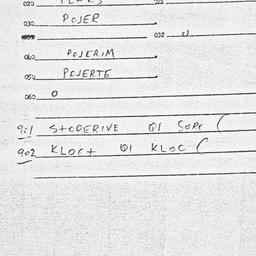 020
030 POJER
032
040 POJERIM
050 POJERTE
060 O
901 STODERIVE Q1 SORE (
902 KLOCT Q1 KLOC (